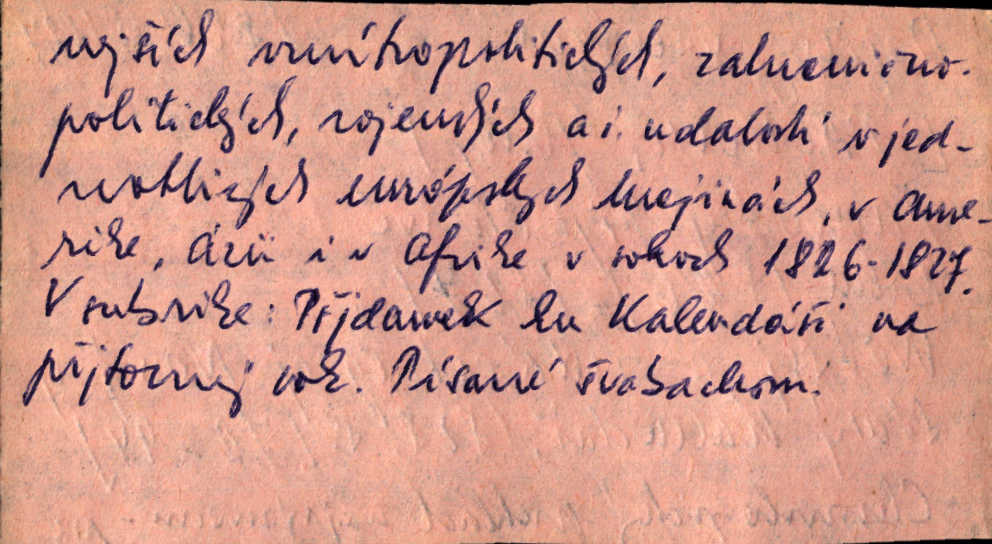 nejších vnútropolitických, zahranično-
politických, vojenských a i. udalostí v jed-
notlivých európskych krajinách, v Ame-
rike, Ázii i v Afrike v rokoch 1826-1827.
V rubrike: Přjdawek ku Kalendáři na
přjtomný rok. Písané švabachom.